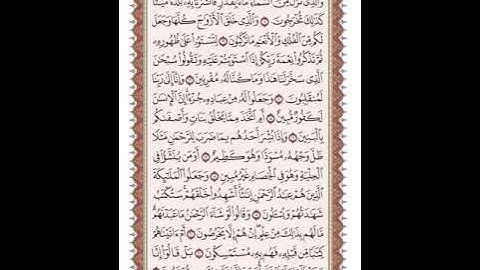 وَالَّذِي نَزَّلَ مِنَ السَّمَاءِ مَاءً بِقَدَرٍ فَأَنشَرْنَا بِهِ بَلْدَةً مَّيْتًا
كَذَٰلِكَ تُخْرَجُونَ ۝ وَالَّذِي خَلَقَ الْأَزْوَاجَ كُلَّهَا وَجَعَلَ
لَكُم مِّنَ الْفُلْكِ وَالْأَنْعَامِ مَا تَرْكَبُونَ ۝ لِتَسْتَوُوا عَلَىٰ ظُهُورِهِ
ثُمَّ تَذْكُرُوا نِعْمَةَ رَبِّكُمْ إِذَا اسْتَوَيْتُمْ عَلَيْهِ وَتَقُولُوا سُبْحَانَ
الَّذِي سَخَّرَ لَنَا هَٰذَا وَمَا كُنَّا لَهُ مُقْرِنِينَ ۝ وَإِنَّا إِلَىٰ رَبِّنَا
لَمُنقَلِبُونَ ۝ وَجَعَلُوا لَهُ مِنْ عِبَادِهِ جُزْءًا إِنَّ الْإِنسَانَ
لَكَفُورٌ مُّبِينٌ ۝ أَمِ اتَّخَذَ مِمَّا يَخْلُقُ بَنَاتٍ وَأَصْفَاكُم
بِالْبَنِينَ ۝ وَإِذَا بُشِّرَ أَحَدُهُم بِمَا ضَرَبَ لِلرَّحْمَٰنِ مَثَلًا
ظَلَّ وَجْهُهُ مُسْوَدًّا وَهُوَ كَظِيمٌ ۝ أَوَمَن يُنَشَّأُ فِي
الْحِلْيَةِ وَهُوَ فِي الْخِصَامِ غَيْرُ مُبِينٍ ۝ وَجَعَلُوا الْمَلَائِكَةَ
الَّذِينَ هُمْ عِبَادُ الرَّحْمَٰنِ إِنَاثًا أَشَهِدُوا خَلْقَهُمْ سَتُكْتَبُ
شَهَادَتُهُمْ وَيُسْأَلُونَ ۝ وَقَالُوا لَوْ شَاءَ الرَّحْمَٰنُ مَا عَبَدْنَاهُم
مَّا لَهُم بِذَٰلِكَ مِنْ عِلْمٍ إِنْ هُمْ إِلَّا يَخْرُصُونَ ۝ أَمْ آتَيْنَاهُمْ
كِتَابًا مِّن قَبْلِهِ فَهُم بِهِ مُسْتَمْسِكُونَ ۝ بَلْ قَالُوا إِنَّا